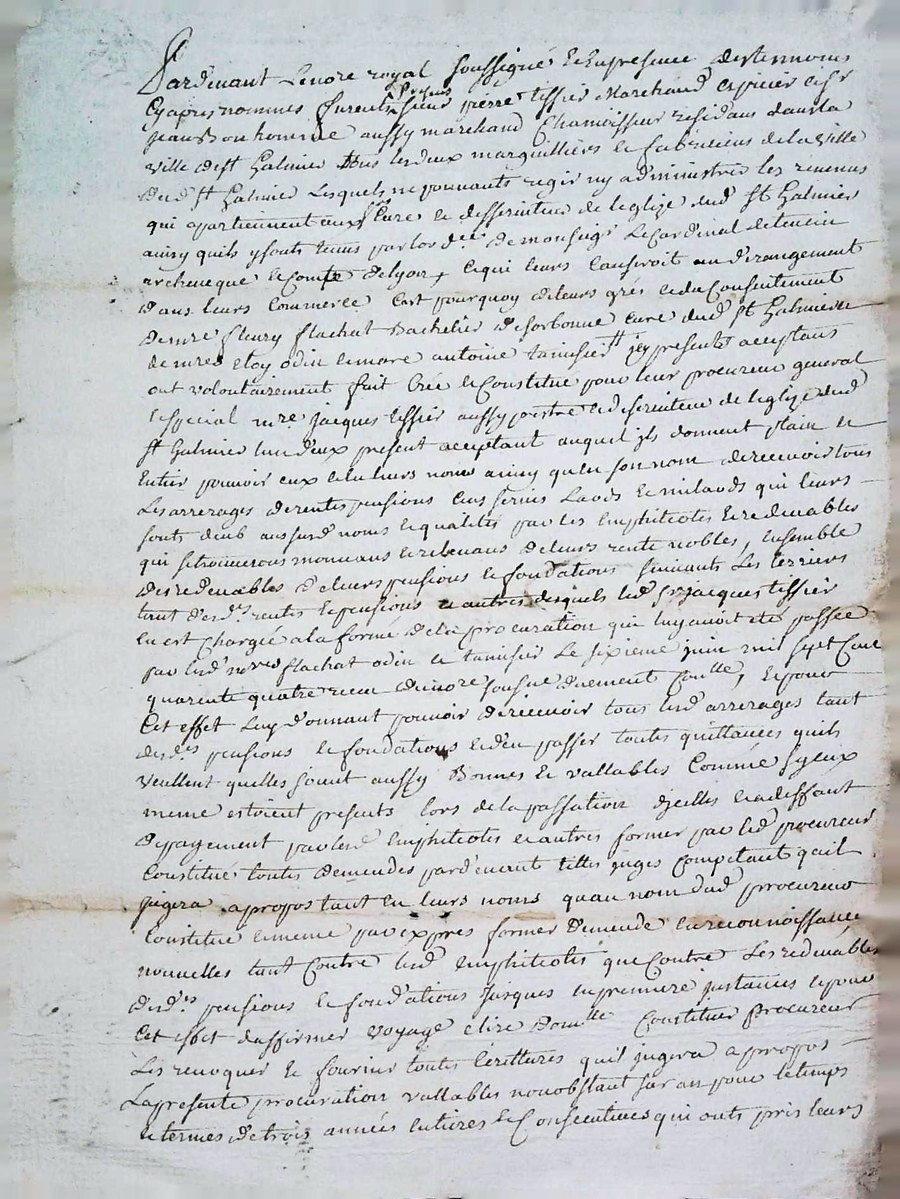 Pardevant Le nore royal soussigné et en presence des temoins
Cy apres nommes furent presens sieur pierre tissier Marchand epicier et sr
jean Bonhomme aussy marchand Chamoisseur residans dans la
ville de st Galmier tous les deux marguilliers et fabriciens de la ville
dud st Galmier Lesquels ne pouvants regir ny administrer les revenus
qui apartiennent aux srs Cure et desserviteur de leglize dud st Galmier
ainsy quils y sonts tenus par lord.ce de monseigr Le Cardinal de tencin
archeveque et Comte de lyon, ce qui leurs Causeroit un derangement
dans leurs Commerce Cest pourquoy de leurs grés et du Consentement
de mre fleury flachat Bachelier de sorbonne Cure dud st Galmier et
de mres eloy odin et mare antoine tamisier icy presents acceptans
ont volontairement fait Créé et Constitué pour leur procureur general
et special mre jacques tissier aussy pretre et desserviteur de leglize dud
st Galmier lun deux present acceptant auquel ils donnent plain et
Entier pouvoir eux et en leurs noms ainsy quen son nom de recevoir tous
Les arrerages de rentes pensions Cens servis Laods et milaods qui leurs
sonts deub auxsusd noms et qualités par les Emphiteotes et redevables
qui se trouveront mouvans et relevans de leurs rente nobles, ensemble
des redevables de leurs pensions et fondations suivants Les terriers
tant desd.es rentes et pensions et autres desquels led sr jacques tissier
en est Chargée a la forme de la procuration qui luy avoit eté passée
par lesd mres flachat odin et tamisier Le sixieme juin mil sept Cent
quarente quatre recu du nore soussné duement Conllé, et pour
Cet effet Luy donnant pouvoir de recevoir tous lesd arrerages tant
desd.es pensions et fondations et den passer toutes quittances quils
veullent quelles soient aussy Bonnes et vallables Comme sy eux
meme estoient presents lors de la passation dicelles et a deffaut
de payement par lesd Emphiteotes et autres former par led procureur
Constitué toutes demendes pardevent telles juges Competant quil
jugera a propos tant en leurs noms quau nom dud procureur
Constitué et meme par expres former demende en reconnoissance
nouvelles tant Contre lesd Emphiteotes que Contre Les redevables
desd.es pensions et fondations jusques en premiere instances et pour
Cet effet daffirmer voyage elire domlle Constituer procureur
Les revoquer et fournir toutes Ecrittures quil jugera a propos
La presente procuration vallables nonobstant sur an pour le temps
et termes de trois années entieres et Consecutives qui onts pris leurs